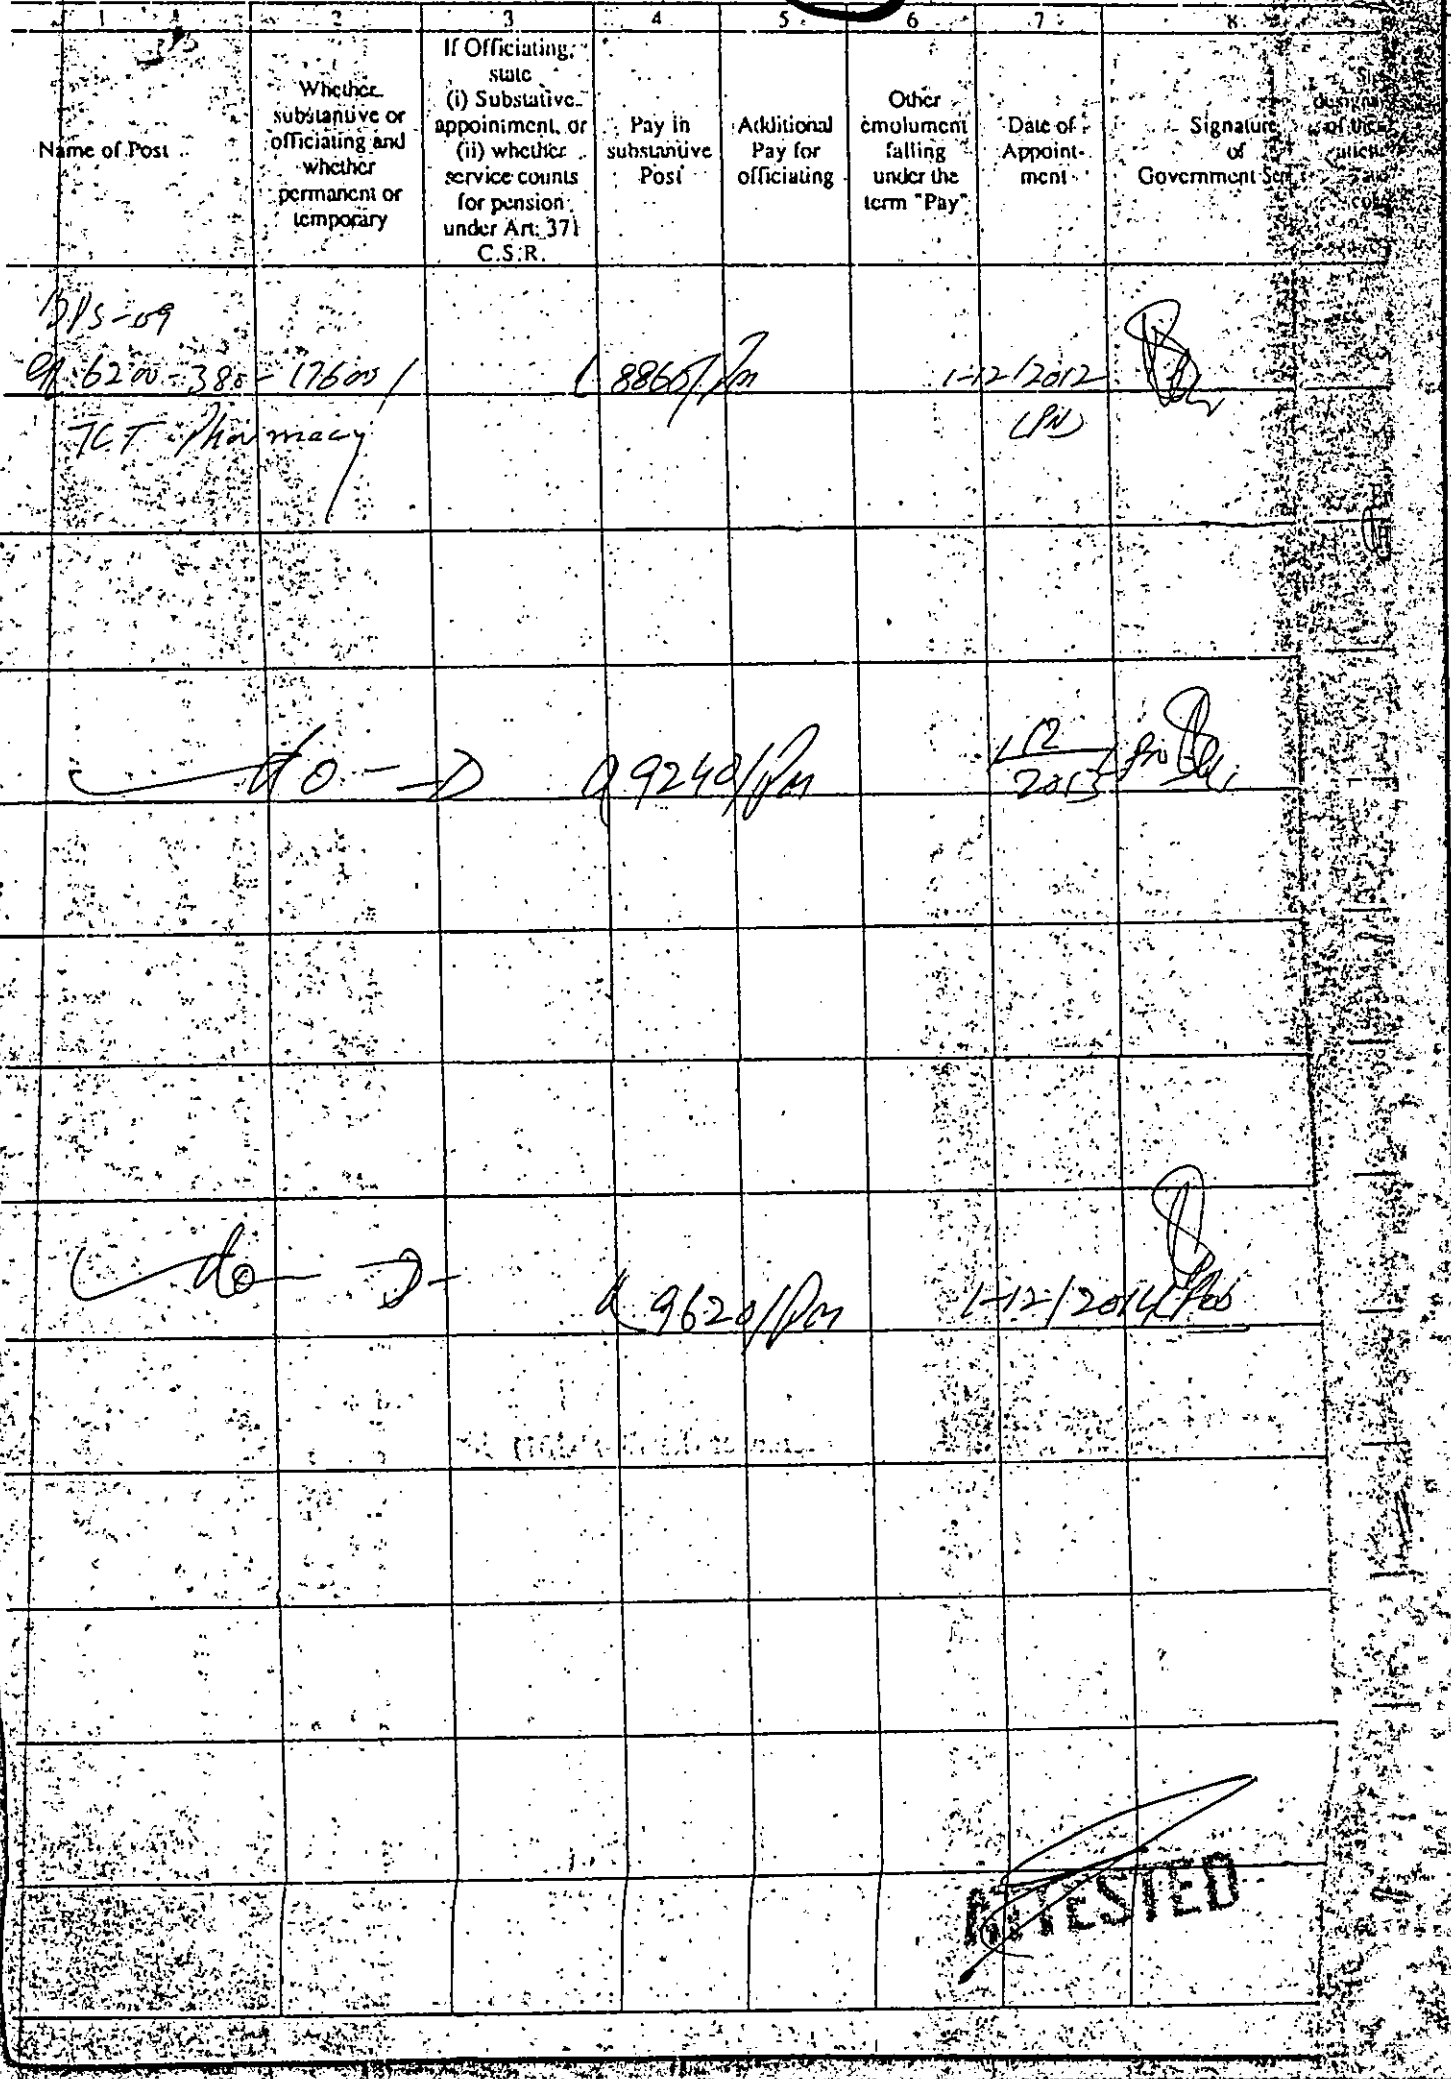 1 2 3 4 5 6 7 8
Name of Post
Whether
substantive or
officiating and
whether
permanent or
temporary
If Officiating,
state
(i) Substative
appoiniment, or
(ii) whether
service counts
for pension
under Art: 371
C.S.R.
Pay in
substantive
Post
Additional
Pay for
officiating
Other
emolument
falling
under the
term "Pay"
Date of
Appoint-
ment
Signature
of
Government
BPS-09
6200-380-17600/
8860/Pm
1-12/2012
TCT Pharmacy
do
9240/Pm
2013
do
9620/Pm
1-12/2014
ATTESTED